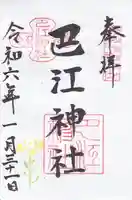 奉拝
巴江神社
令和六年一月三十一日